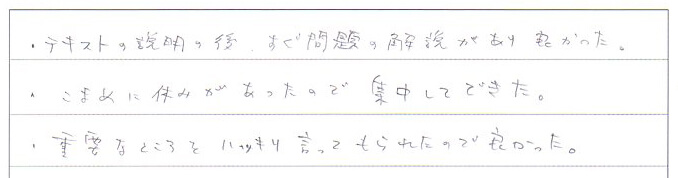 ・テキストの説明の後、すぐ問題の解説があり良かった。
・こまめに休みがあったので集中してできた。
・重要なところをハッキリ言ってもらえたので良かった。